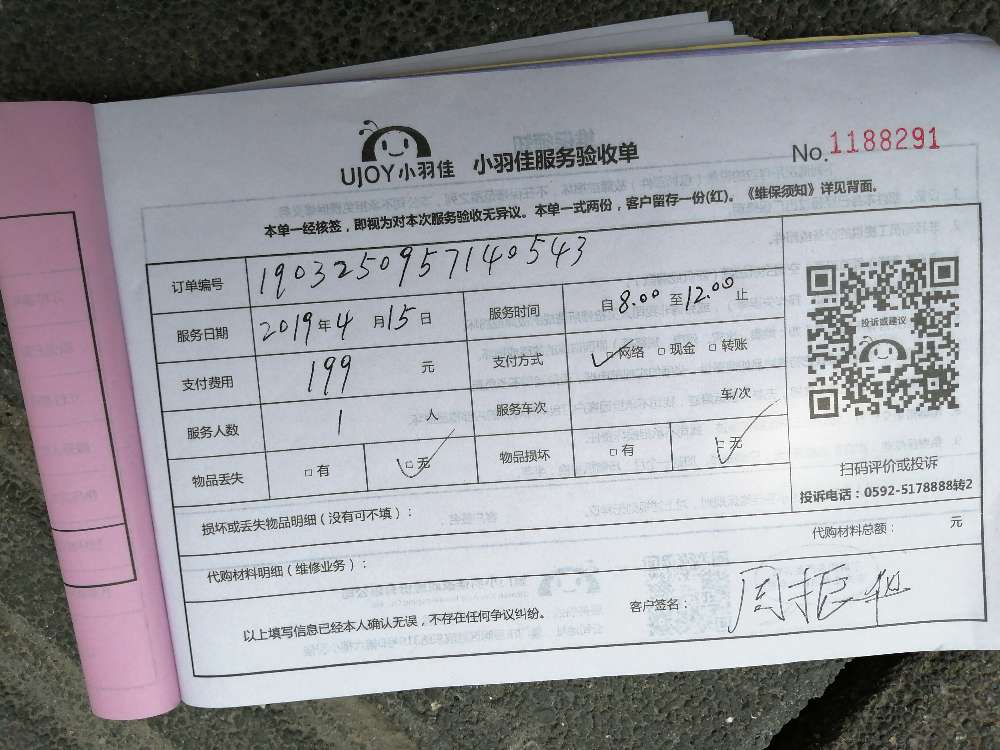 UJOY小羽佳 小羽佳服务验收单 No.1188291
本单一经核签，即视为对本次服务验收无异议。本单一式两份，客户留存一份(红)。《维保须知》详见背面。
订单编号 1903250957140543
服务日期 2019年4月15日 服务时间 自8.00至12.00止
支付费用 199 元 支付方式 ☑网络 □现金 □转账
服务人数 1 人 服务车次 车/次
物品丢失 □有 ☑无 物品损坏 □有 ☑无
投诉或建议
扫码评价或投诉
投诉电话：0592-5178888转2
损坏或丢失物品明细（没有可不填）：
代购材料明细（维修业务）： 代购材料总额： 元
以上填写信息已经本人确认无误，不存在任何争议纠纷。 客户签名： 周振